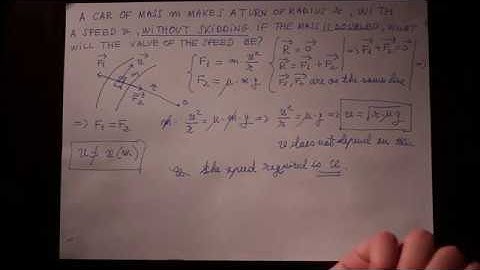 A CAR OF MASS m MAKES A TURN OF RADIUS r, WITH
A SPEED u, WITHOUT SKIDDING IF THE MASS IS DOUBLED, WHAT
WILL THE VALUE OF THE SPEED BE?
F₁ = m u²/r
F₂ = μ·m·g
R⃗ = 0⃗
R⃗ = F⃗₁ + F⃗₂
F⃗₁, F⃗₂ are on the same line
=> F⃗₁ + F⃗₂ = 0⃗ =>
F⃗₁
u⃗
m
r
F⃗₂
O
=> F₁ = F₂
m·u²/r = μ·m·g => u²/r = μ·g => u = √rμg
u ≠ u(m)
u does not depend on
the speed required is u.